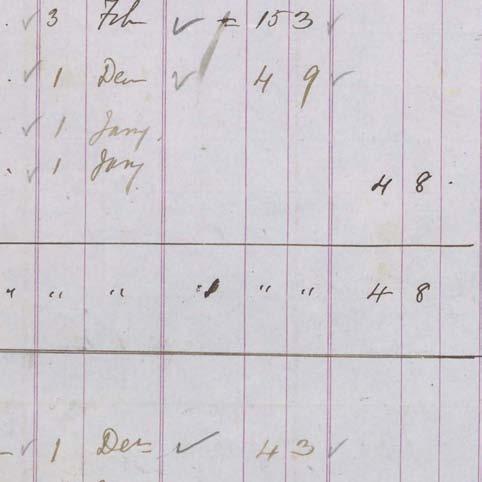 ✓ 3 Feb ✓ 153 ✓
✓ 1 Dec ✓ 4 9 ✓
✓ 1 Jany.
✓ 1 Jany
4 8 .
" " " " " " 4 8
✓ 1 Dec ✓ 43 ✓